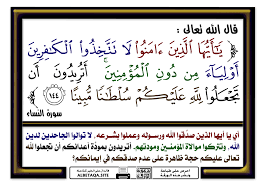 قال الله تعالى :
﴿ يَٰٓأَيُّهَا ٱلَّذِينَ ءَامَنُوا۟ لَا تَتَّخِذُوا۟ ٱلْكَٰفِرِينَ
أَوْلِيَآءَ مِن دُونِ ٱلْمُؤْمِنِينَ ۚ أَتُرِيدُونَ أَن
تَجْعَلُوا۟ لِلَّهِ عَلَيْكُمْ سُلْطَٰنًا مُّبِينًا ١٤٤ ﴾
سورة النساء
أي يا أيها الذين صدقوا الله ورسوله وعملوا بشرعه، لا توالوا الجاحدين لدين
الله، وتتركوا موالاة المؤمنين ومودتهم. أتريدون بمودة أعدائكم أن تجعلوا لله
تعالى عليكم حجة ظاهرة على عدم صدقكم في إيمانكم؟
ALBETAQA.SITE